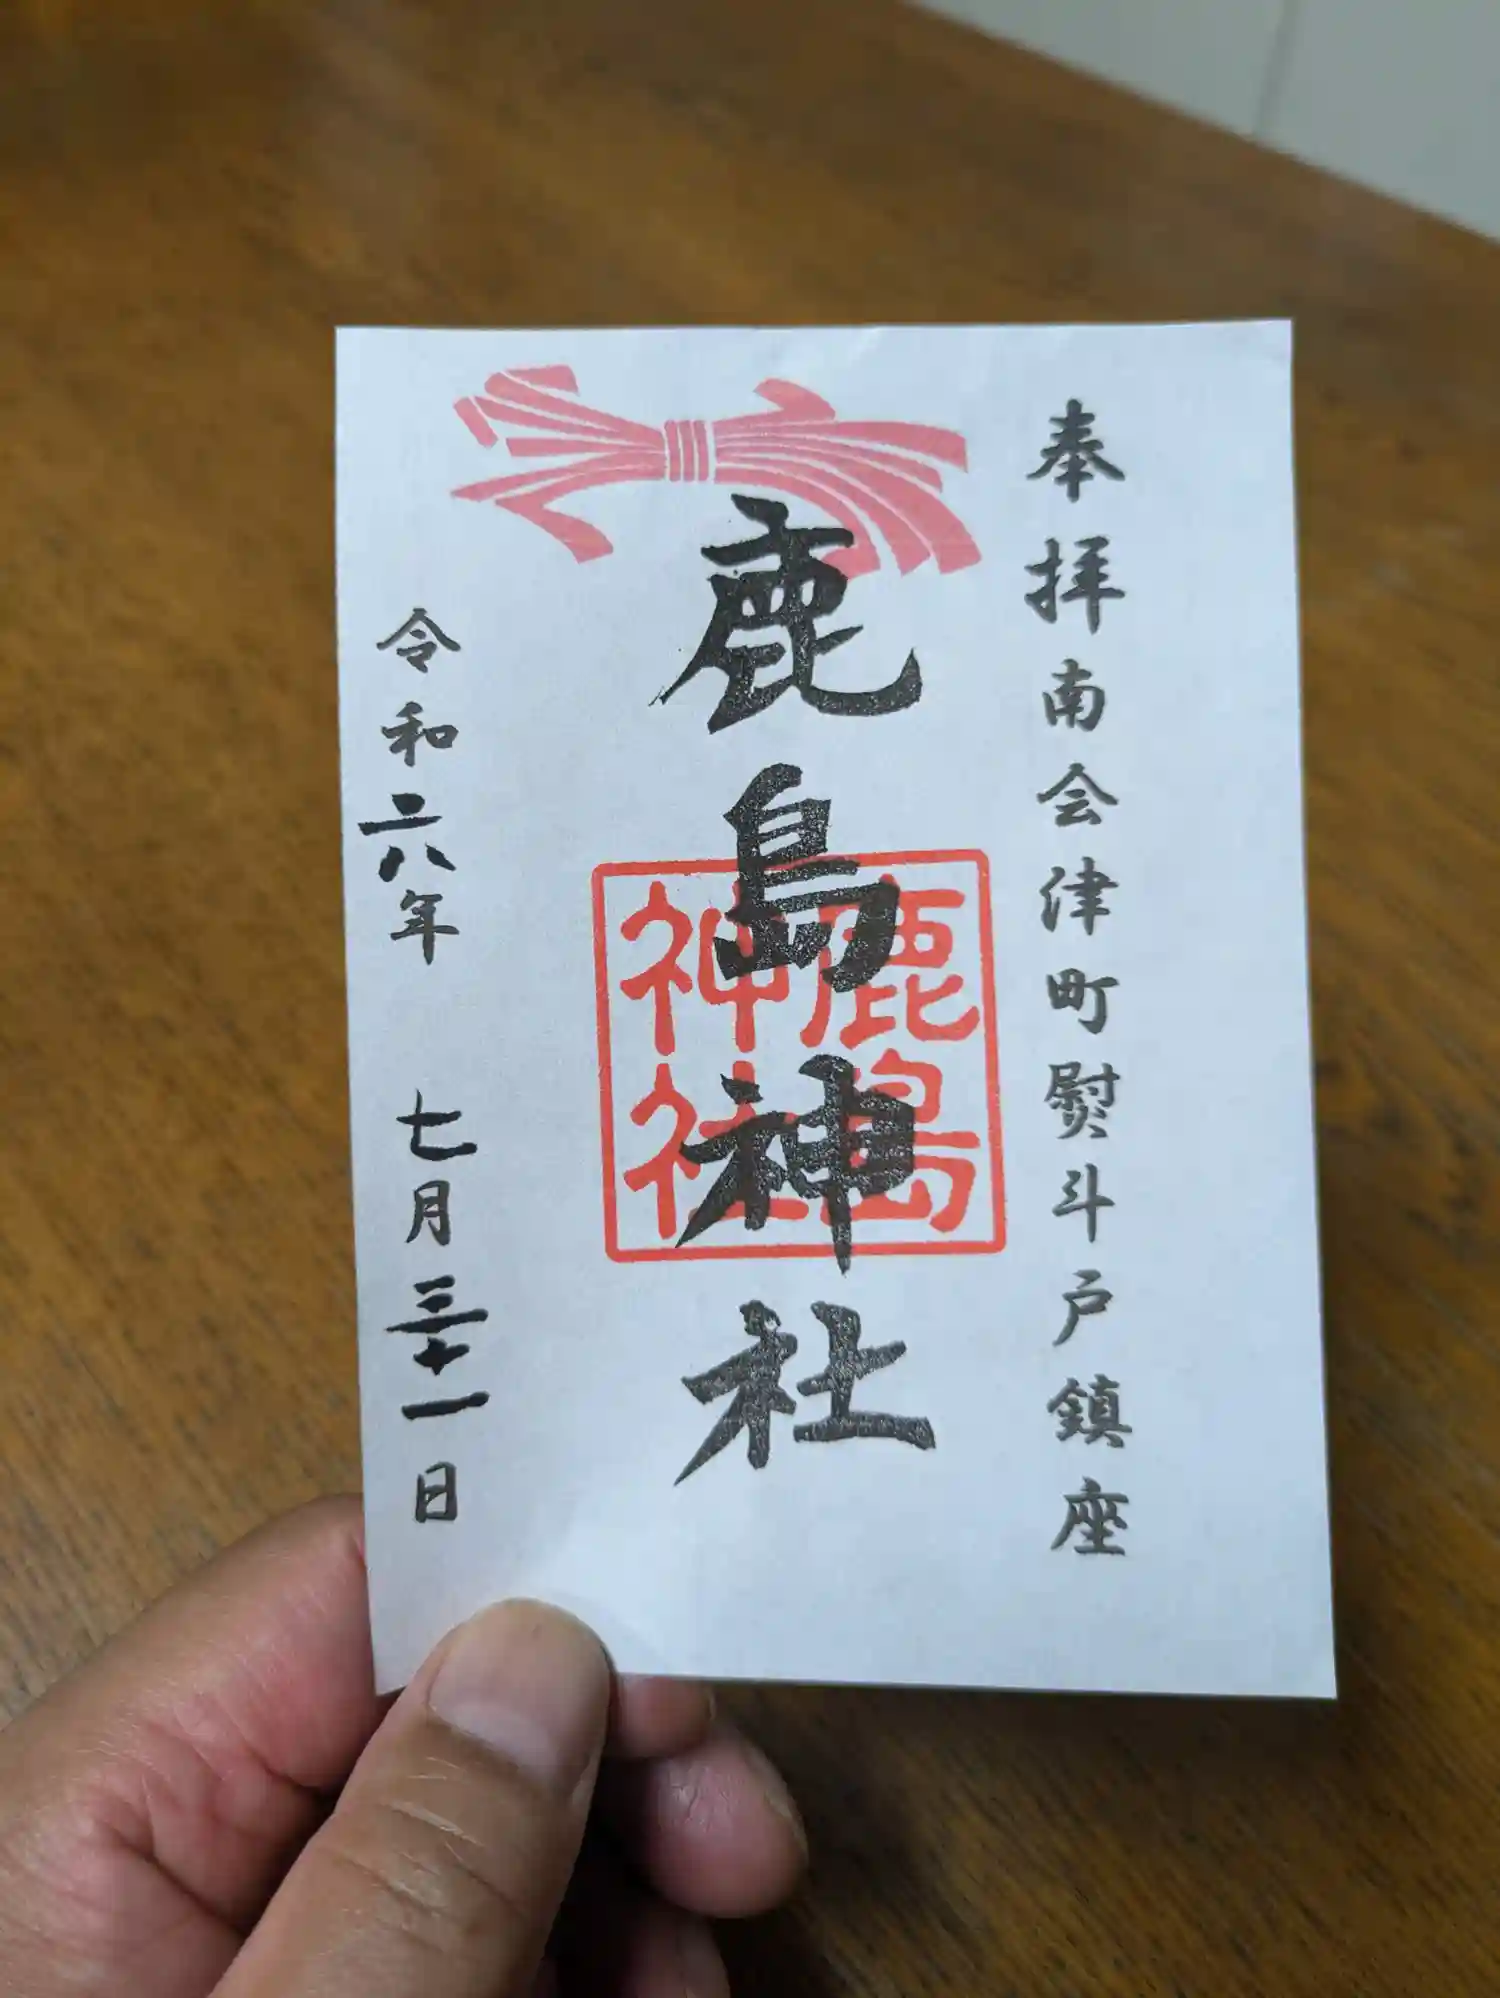 奉拝南会津町熨斗戸鎮座
鹿島神社
鹿島
神社
令和六年 七月三十一日